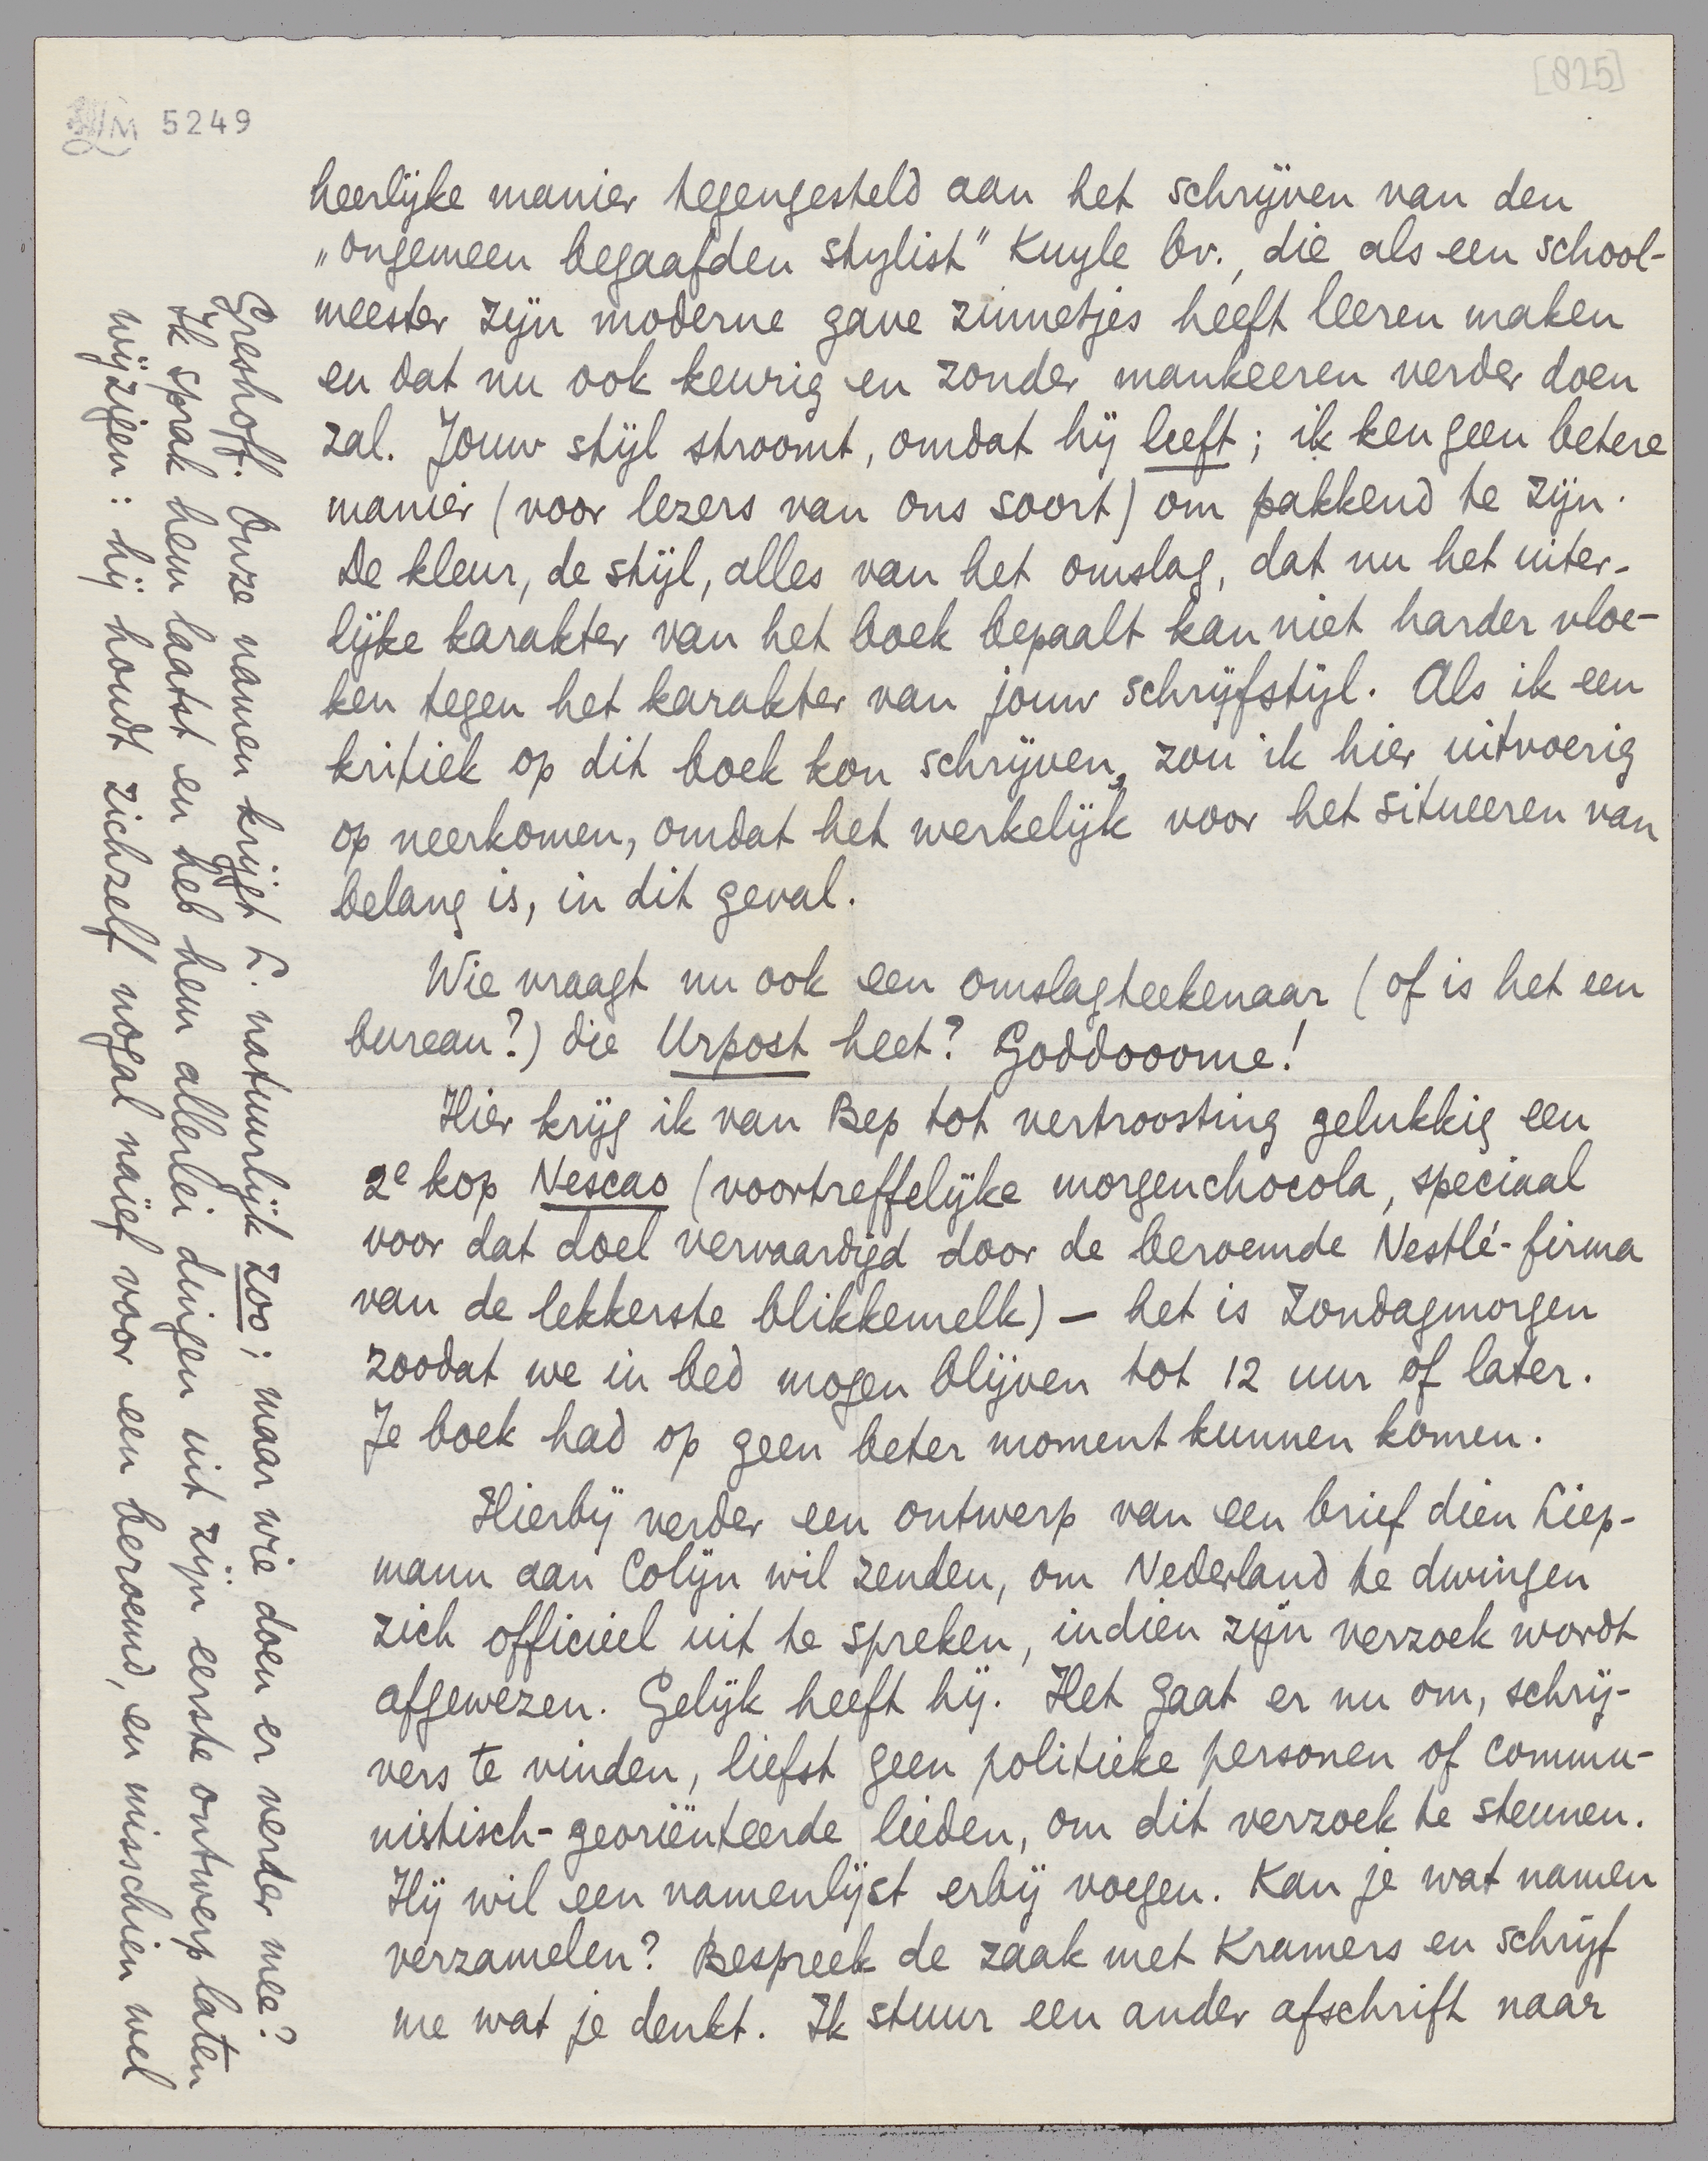 [825]
5249
heerlijke manier tegengesteld aan het schrijven van den
„ongemeen begaafden stylist" Kuyle bv., die als een school-
meester zijn moderne gave zinnetjes heeft leeren maken
en dat nu ook keurig en zonder mankeeren verder doen
zal. Jouw stijl stroomt, omdat hij leeft; ik ken geen betere
manier (voor lezers van ons soort) om pakkend te zijn.
De kleur, de stijl, alles van het omslag, dat nu het uiter-
lijke karakter van het boek bepaalt kan niet harder vloe-
ken tegen het karakter van jouw schrijfstijl. Als ik een
kritiek op dit boek kon schrijven, zou ik hier uitvoerig
op neerkomen, omdat het werkelijk voor het situeeren van
belang is, in dit geval.
Wie vraagt nu ook een omslagteekenaar (of is het een
bureau?) die Urpost heet? Goddooome!
Hier krijg ik van Bep tot vertroosting gelukkig een
2e kop Nescao (voortreffelijke morgenchocola, speciaal
voor dat doel vervaardigd door de beroemde Nestlé-firma
van de lekkerste blikkemelk) — het is Zondagmorgen
zoodat we in bed mogen blijven tot 12 uur of later.
Je boek had op geen beter moment kunnen komen.
Hierbij verder een ontwerp van een brief dien Liep-
mann aan Colijn wil zenden, om Nederland te dwingen
zich officieel uit te spreken, indien zijn verzoek wordt
afgewezen. Gelijk heeft hij. Het gaat er nu om, schrij-
vers te vinden, liefst geen politieke personen of commu-
nistisch-georiënteerde lieden, om dit verzoek te steunen.
Hij wil een namenlijst erbij voegen. Kan je wat namen
verzamelen? Bespreek de zaak met Kramers en schrijf
me wat je denkt. Ik stuur een ander afschrift naar
Greshoff. Onze namen krijgt L. natuurlijk zoo; maar wie doen er verder mee?
Ik sprak hem laatst en heb hem allerlei dingen uit zijn eerste ontwerp laten
wijzigen: hij houdt zichzelf nogal naïef voor een beroemd, en misschien wel